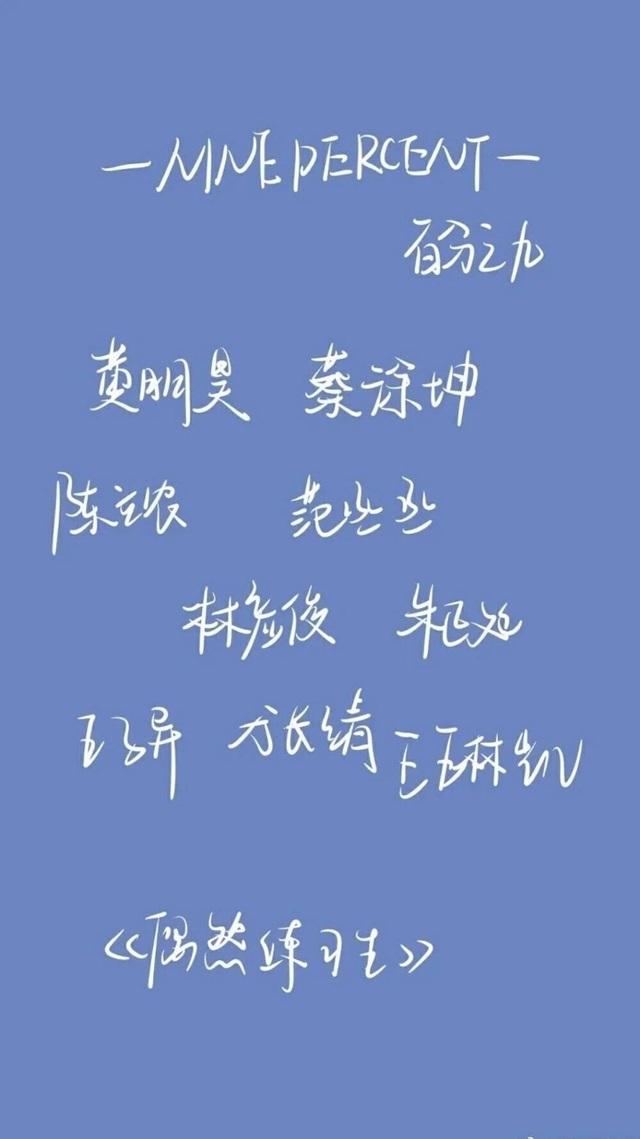 —NINE PERCENT—
百分之九
黄明昊 蔡徐坤
陈立农 范丞丞
林彦俊 朱正廷
王子异 尤长靖 王琳凯
《偶然练习生》